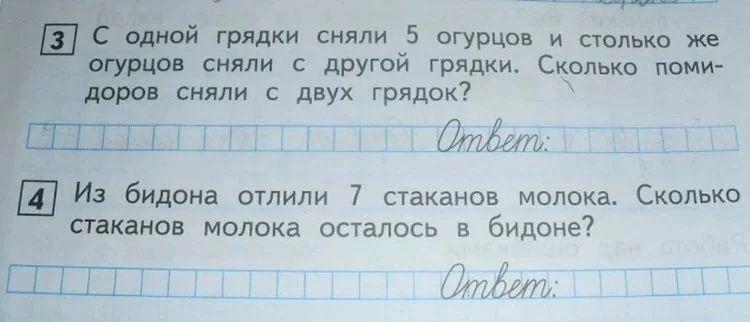 3 С одной грядки сняли 5 огурцов и столько же
огурцов сняли с другой грядки. Сколько поми-
доров сняли с двух грядок?
Ответ:
4 Из бидона отлили 7 стаканов молока. Сколько
стаканов молока осталось в бидоне?
Ответ: